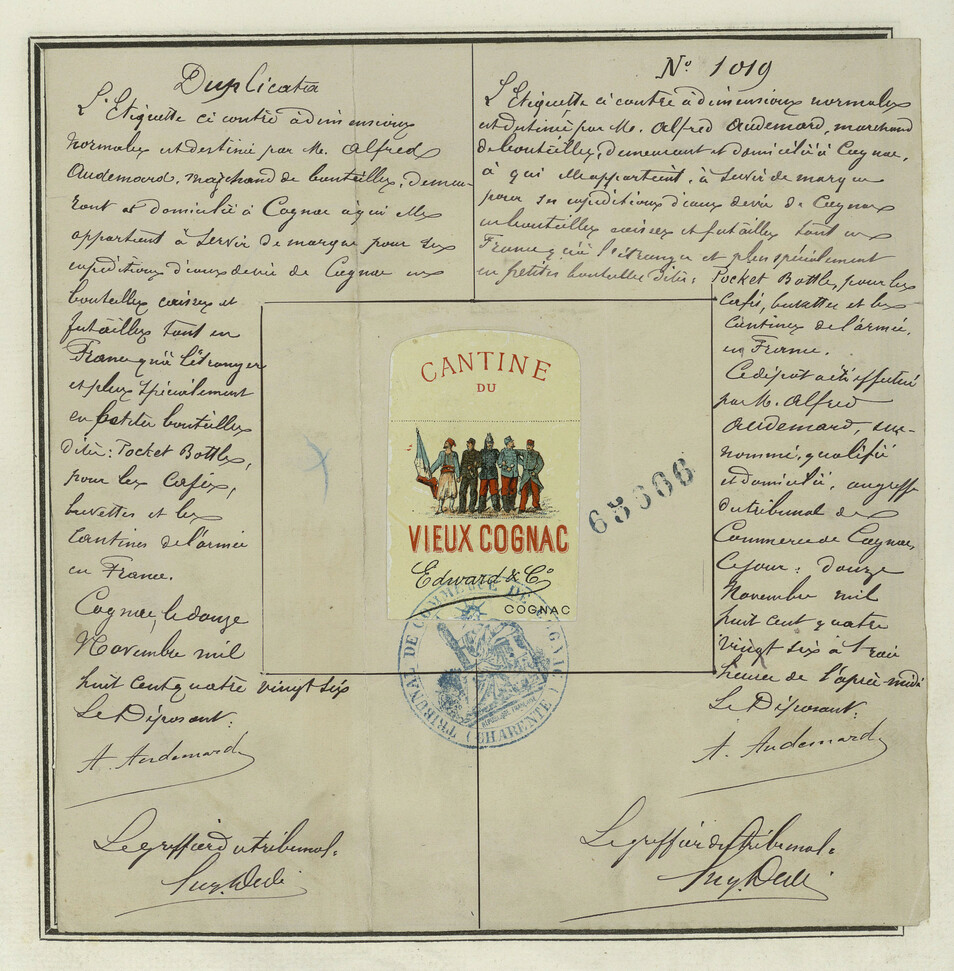 Duplicata
L'Etiquette ci contre à dimensions
normales est destinée par M. Alfred
Audemard, marchand de bouteilles, demeu-
rant et domicilié à Cognac à qui elle
appartient à servir de marque pour ses
expéditions d'eaux de vie de Cognac en
bouteilles caisses et
futailles tant en
France qu'à l'étranger
et plus spécialement
en petites bouteilles
dites: Pocket Bottles,
pour les Cafés,
buvettes et les
Cantines de l'armée
en France.
Cognac, le douze
Novembre mil
huit cent quatre vingt six
Le Déposant:
A. Audemard
Le greffier du tribunal.
No 1019
L'Etiquette ci contre à dimensions normales
est destinée par M. Alfred Audemard, marchand
de bouteilles, demeurant et domicilié à Cognac,
à qui elle appartient, à servir de marque
pour ses expéditions d'eaux de vie de Cognac
en bouteilles caisses et futailles tant en
France qu'à l'étranger et plus spécialement
en petites bouteilles dites: Pocket Bottles, pour les
Cafés, buvettes et les
Cantines de l'armée,
en France.
Ce dépôt a été effectué
par M. Alfred
Audemard, sus-
nommé, qualifié
et domicilié, au greffe
du tribunal de
Commerce de Cognac,
Ce jour: douze
Novembre mil
huit cent quatre
vingt six à trois
heures de l'après midi
Le Déposant:
A. Audemard
Le greffier du tribunal.
CANTINE
DU
VIEUX COGNAC
Edward & Co
COGNAC
65666
TRIBUNAL DE COMMERCE DE COGNAC (CHARENTE)
RÉPUBLIQUE FRANÇAISE